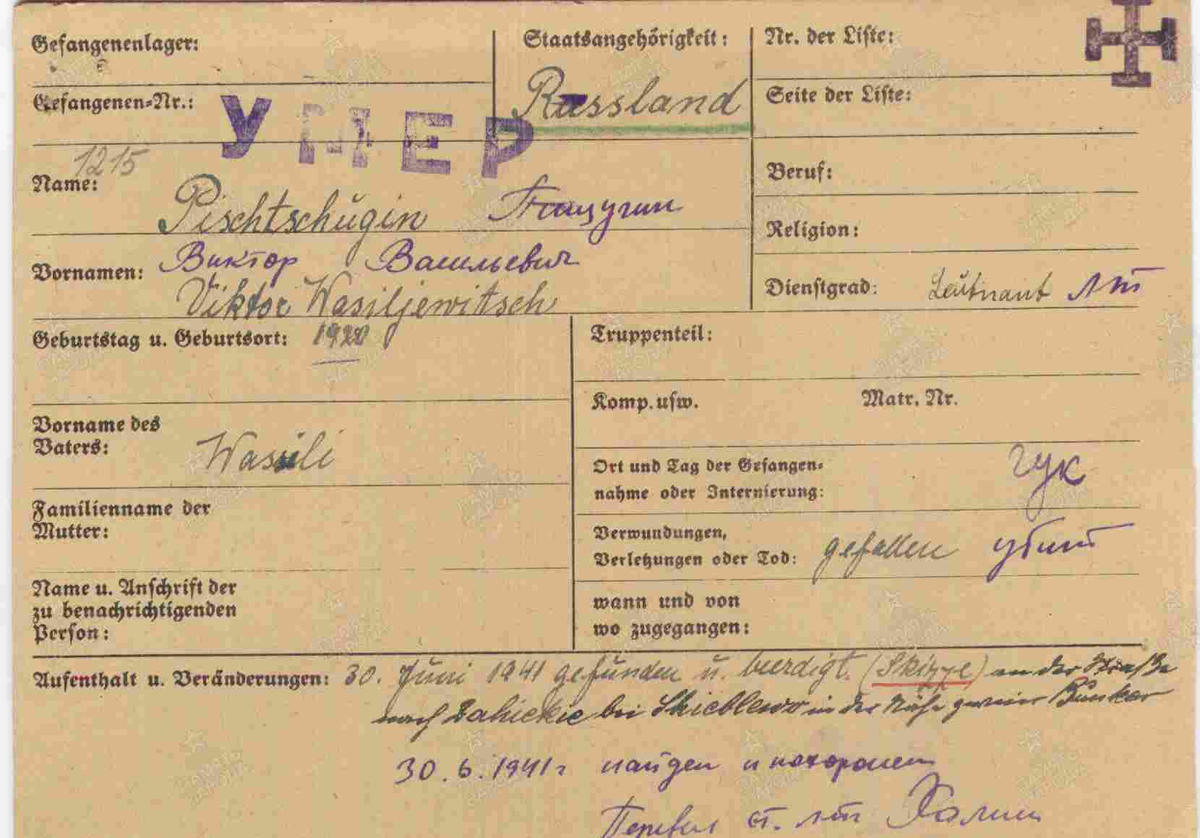 Gefangenenlager:
Staatsangehörigkeit:
Russland
Nr. der Liste:
Gefangenen-Nr.:
1215
УМЕР
Seite der Liste:
Name:
Pischtschugin Пищугин
Beruf:
Religion:
Vornamen:
Виктор Васильевич
Viktor Wasiljewitsch
Dienstgrad: Leutnant лт
Geburtstag u. Geburtsort: 1920
Truppenteil:
Komp. usw. Matr. Nr.
Vorname des
Vaters:
Wasili
Ort und Tag der Gefangen-
nahme oder Internierung:
ГУК
Familienname der
Mutter:
Verwundungen,
Verletzungen oder Tod: gefallen убит
Name u. Anschrift der
zu benachrichtigenden
Person:
wann und von
wo zugegangen:
Aufenthalt u. Veränderungen: 30. Juni 1941 gefunden u. beerdigt. (Skizze) an der Straße
nach bei Skieblewo in der Nähe zweier Bunker
30.6.1941г найден и похоронен
Перевел ст. лт